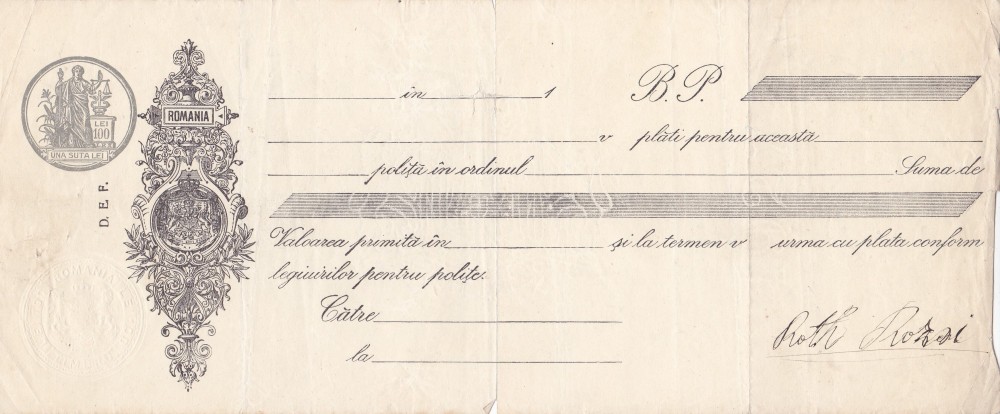 in 1 B.P.
LEI
100
UNA SUTA LEI
ROMANIA
v plăti pentru această
poliță în ordinul Suma de
D. E. F.
Valoarea primită în și la termen v urma cu plata conform
legiuirilor pentru polițe.
ROMANIA
Către
la
Roth